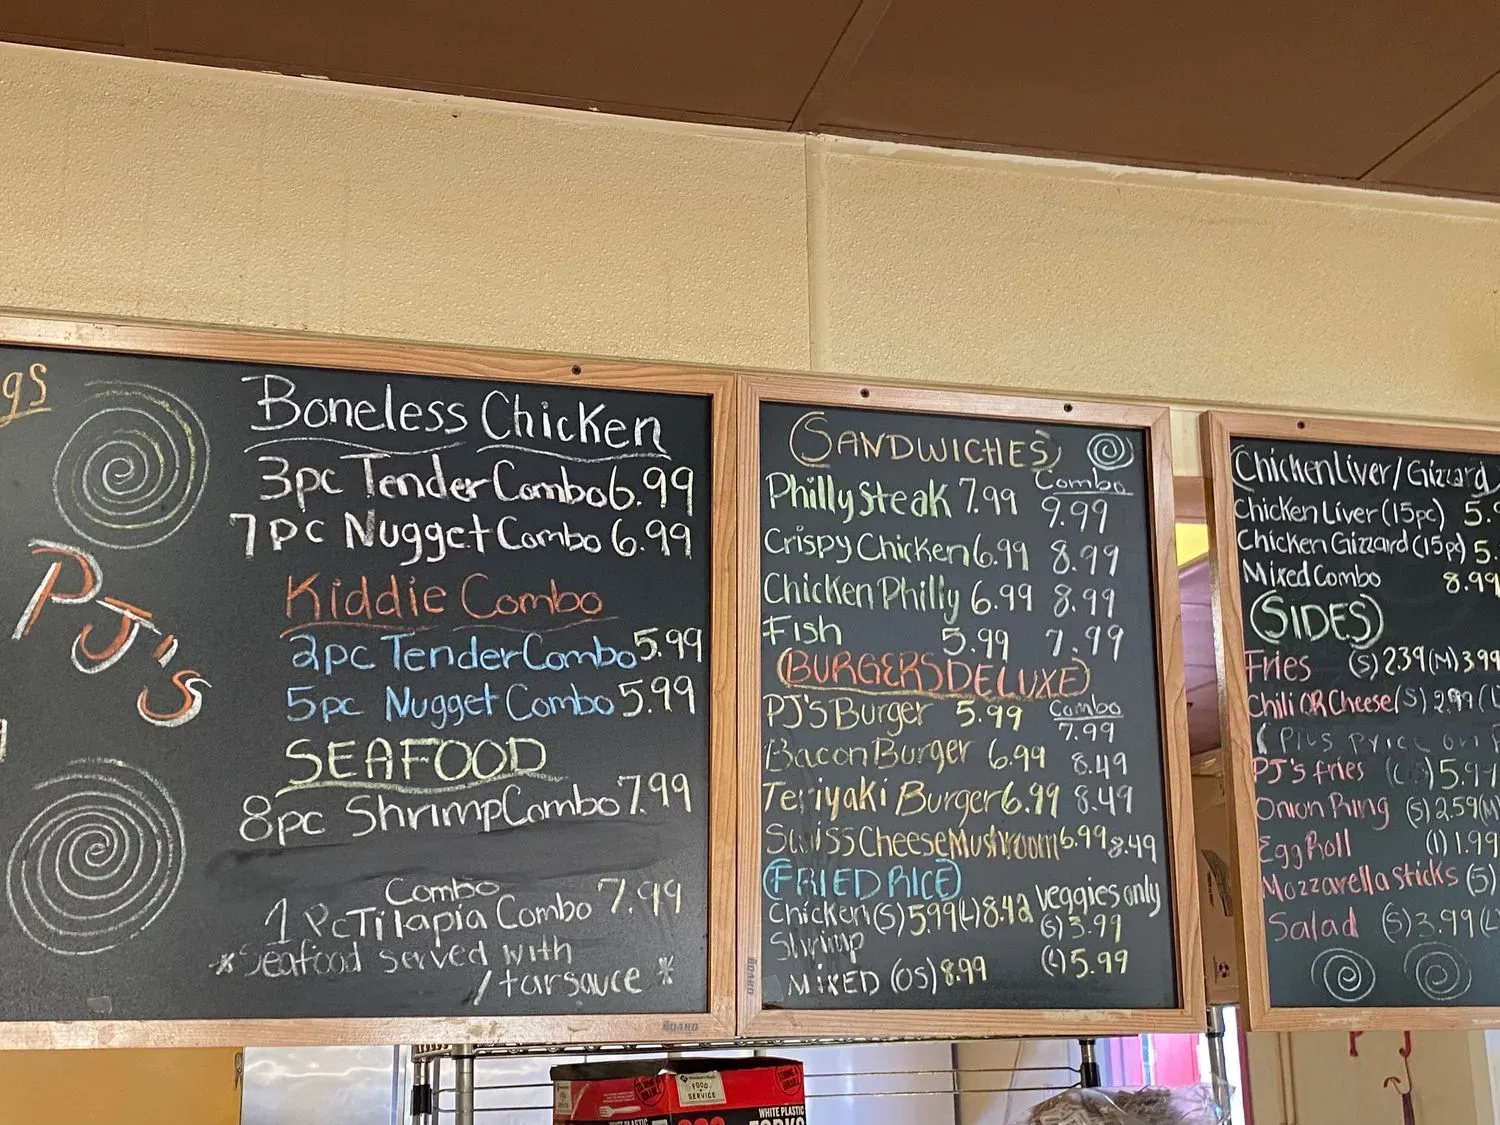 gs
PJ's
Boneless Chicken
3pc Tender Combo 6.99
7pc Nugget Combo 6.99
Kiddie Combo
2pc Tender Combo 5.99
5pc Nugget Combo 5.99
SEAFOOD
8pc Shrimp Combo 7.99
Combo
1 Pc Tilapia Combo 7.99
*Seafood served with
/tarsauce *
BOARD
SANDWICHES
Combo
Philly Steak 7.99 9.99
Crispy Chicken 6.99 8.99
Chicken Philly 6.99 8.99
Fish 5.99 7.99
BURGERS DELUXE
Combo
PJ'S Burger 5.99 7.99
Bacon Burger 6.99 8.49
Teriyaki Burger 6.99 8.49
Swiss Cheese Mushroom 6.99 8.49
FRIED RICE
Chicken (S) 5.99 (L) 8.42 veggies only
Shrimp (S) 3.99
MIXED (OS) 8.99 (L) 5.99
BOARD
Chicken Liver/Gizzard
Chicken Liver (15pc) 5.9
Chicken Gizzard (15pc) 5.
Mixed Combo 8.99
SIDES
Fries (S) 2.39 (M) 3.99
Chili OR Cheese (S) 2.99 (L
(Plus price on
PJ's fries 5.9
Onion Ring (S) 2.59 (M)
Egg Roll (1) 1.99
Mozzarella sticks (5)
Salad (S) 3.99 (L
FOOD
SERVICE
WHITE PLASTIC
FORKS